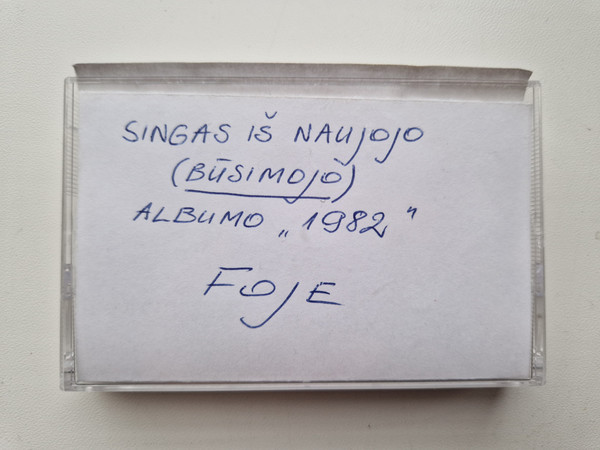 SINGAS IŠ NAUJOJO
(BŪSIMOJO)
ALBUMO „1982"
FOJE